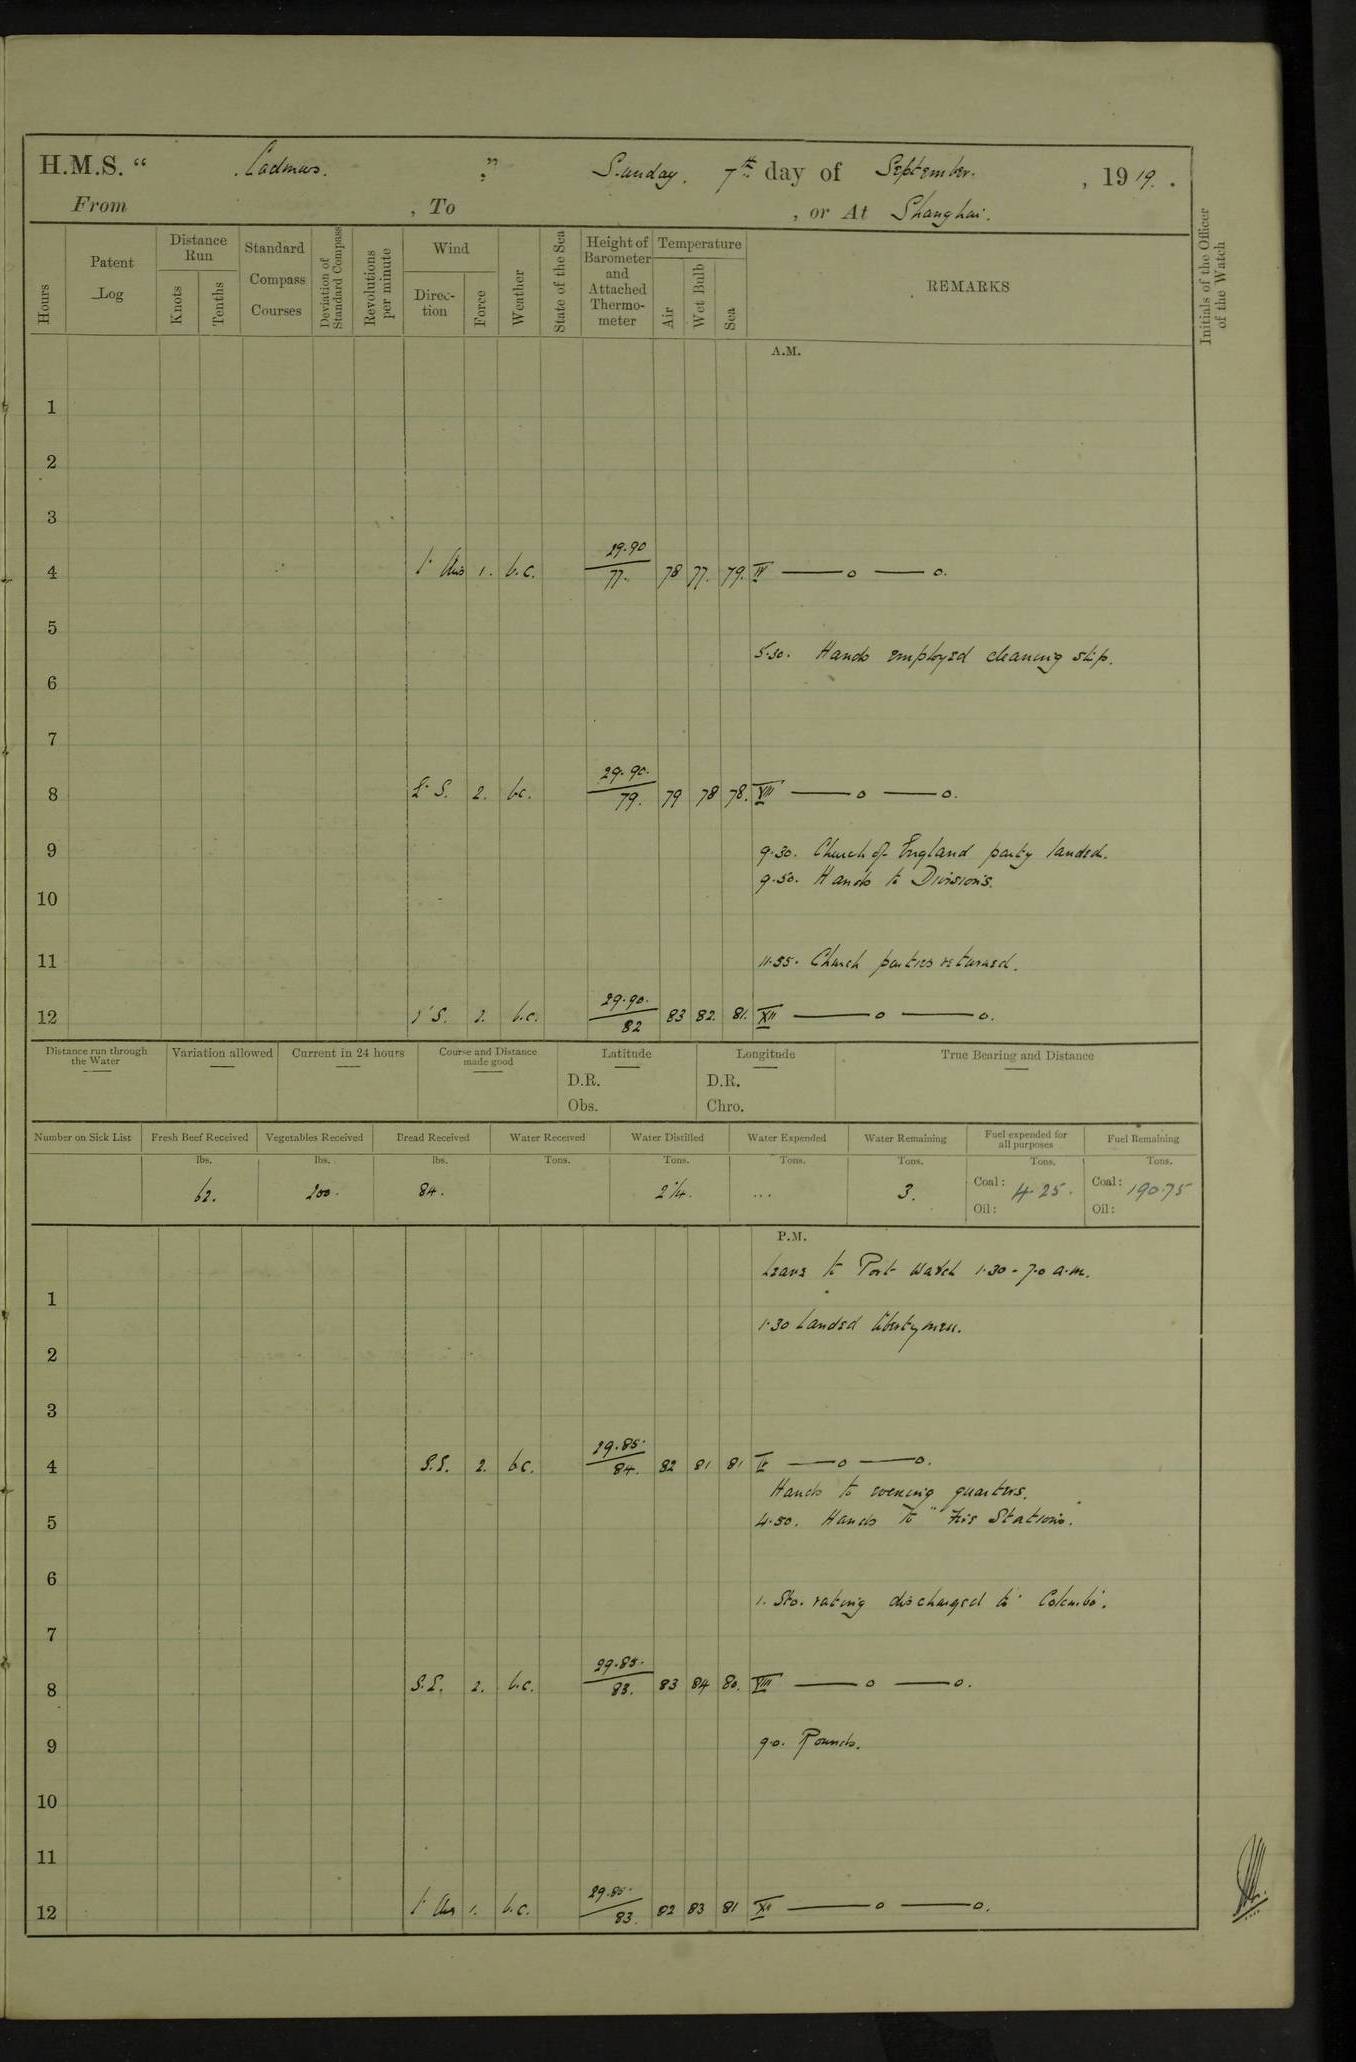 H.M.S. “ Cadmus. ” Sunday. 7th day of September. , 1919.
From , To , or At Shanghai.
Hours
Patent Log
Distance Run
Knots
Tenths
Standard Compass Courses
Deviation of Standard Compass
Revolutions per minute
Wind
Direction
Force
Weather
State of the Sea
Height of Barometer and Attached Thermometer
Temperature
Air
Wet Bulb
Sea
REMARKS
Initials of the Officer of the Watch
A.M.
1
2
3
4 Lt Airs 1. b.c. 29.90 77. 78 77. 79. IV —— o —— o.
5
5.30. Hands employed cleaning ship.
6
7
8 S. 2. bc. 29.90. 79. 79 78 78. VIII —— o —— o.
9 9.30. Church of England party landed.
9.50. Hands to Divisions.
10
11 11.55. Church parties returned.
12 S. 2. b.c. 29.90. 82 83 82. 81. XII —— o —— o.
Distance run through the Water
Variation allowed
Current in 24 hours
Course and Distance made good
Latitude
Longitude
True Bearing and Distance
D.R. D.R.
Obs. Chro.
Number on Sick List
Fresh Beef Received
Vegetables Received
Bread Received
Water Received
Water Distilled
Water Expended
Water Remaining
Fuel expended for all purposes
Fuel Remaining
lbs. lbs. lbs. Tons. Tons. Tons. Tons. Tons. Tons.
62. 200. 84. 2¼. ... 3. Coal: 4.25. Coal: 190.75
Oil: Oil:
P.M.
Leave to Port Watch 1.30 - 7.0 a.m.
1
1.30 Landed libertymen.
2
3
4 2. bc. 29.85. 84. 82 81 81 IV —— o —— o.
Hands to evening quarters.
5 4.50. Hands to "Fire Stations.
6
1. Sto. rating discharged to "Colombo".
7
8 S.E. 2. b.c. 29.85. 83. 83 84 80. VIII —— o —— o.
9 9.0. Rounds.
10
11
12 Lt Airs 1. b.c. 29.85. 83. 82 83 81 XII —— o —— o.